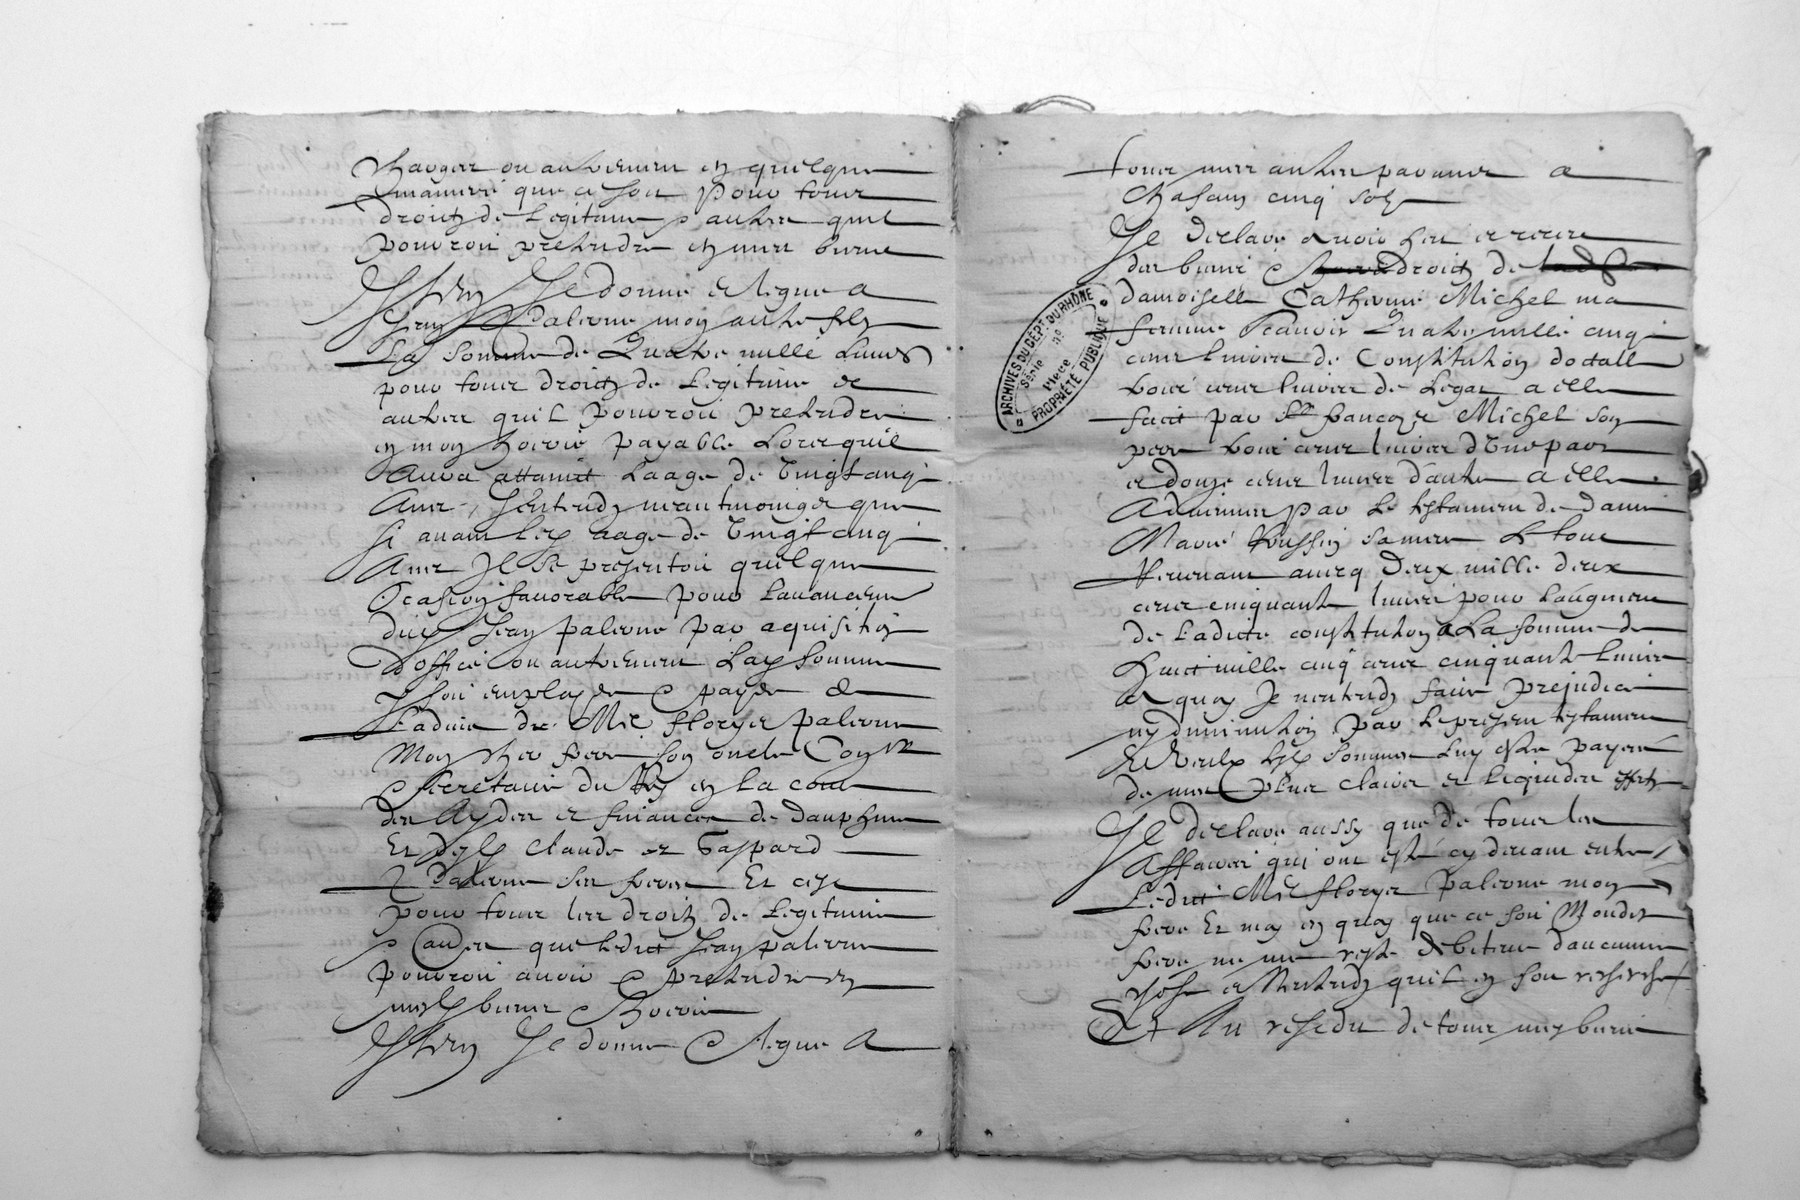 charger ou autrement en quelque
maniere que ce soit pour tous
droitz de legitime & autres quil
pouvroit pretendre en mes biens
Item Je donne & legue a
Jean palerne mon autre filz
La somme de Quatre mille livres
pour tous droictz de legitime &
autres quil pouvroit pretendre
en mon hoirie payable Lors quil
Aura attainct Laage de vingt cinq
Ans, Jentendz neantmoings que
si avant led aage de vingt cinq
Ans Il se presentoit quelque
Ocasion favorable pour Lavancement
dud Jean palerne par aquisition
d'office ou autrement Lad somme
y soit employée & payée de
Ladvis de Me fleorys palerne
Mon cher frere son oncle Conser
& secretaire du Roy en La cour
des Aydes et finances de dauphine
Et desd Claude et Gaspard
palerne ses freres Et ce
pour tous les droitz de Legitime
& autres que ledict Jean palerne
pouvroit avoir & pretendre en
mesd biens & hoirie
Item Je donne & legue a
tous mes autres parans a
Chascun cinq solz
Je declare avoir heu et receu
des biens & droictz de
damoiselle Catherine Michel ma
femme scavoir Quatre mille cinq
cens livres de Constitution dottalle
trois cens livres de Legat a elle
faict par sr francoys Michel son
pere trois cens livres d'une part
et douze cens livres d'autre a elle
Advenus par Le testament de dame
Marie sa mere Le tout
Revenant avecq deux mille deux
cens cinquante livres pour Laugment
de Ladicte constitution a La somme de
huict mille cinq cens cinquante livres
A quoy Je nentendz faire prejudice
ny diminution par Le present testament
Et veulx lesd sommes Luy estre payees
de mes plus clairs et liquides effectz
Je declare aussy que de tous les
Affaires qui ont esté cy devant entre
Ledict Me fleorys palerne mon
frere Et moy en quoy que ce soit Mondict
frere ne me reste debiteur d'aucune
chose et Nentendz quil en soit recherché
Et Au residu de tous mes biens
ARCHIVES DU DÉPT. DU RHÔNE
Série no
Pièce
PROPRIÉTÉ PUBLIQUE